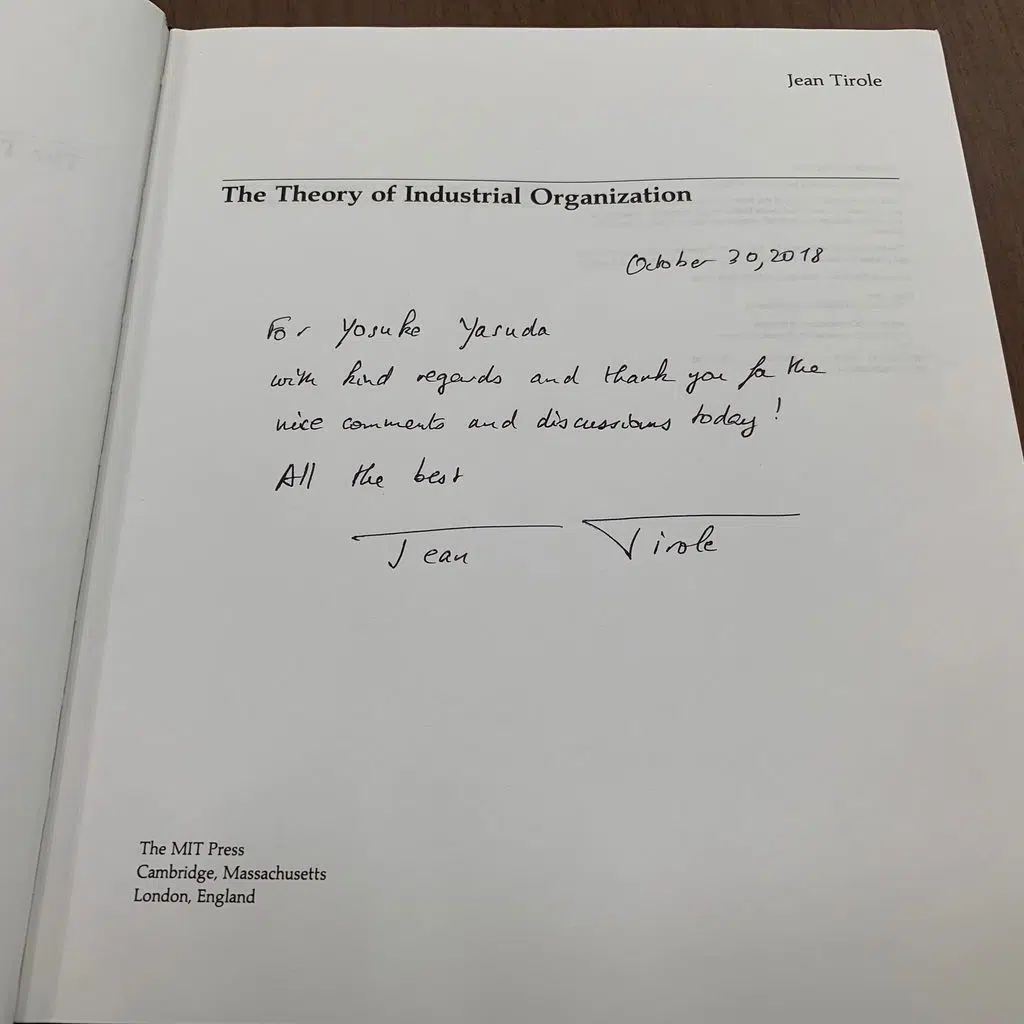 Jean Tirole
The Theory of Industrial Organization
October 30, 2018
For Yosuke Yasuda
with kind regards and thank you for the
nice comments and discussions today!
All the best
Jean Tirole
The MIT Press
Cambridge, Massachusetts
London, England